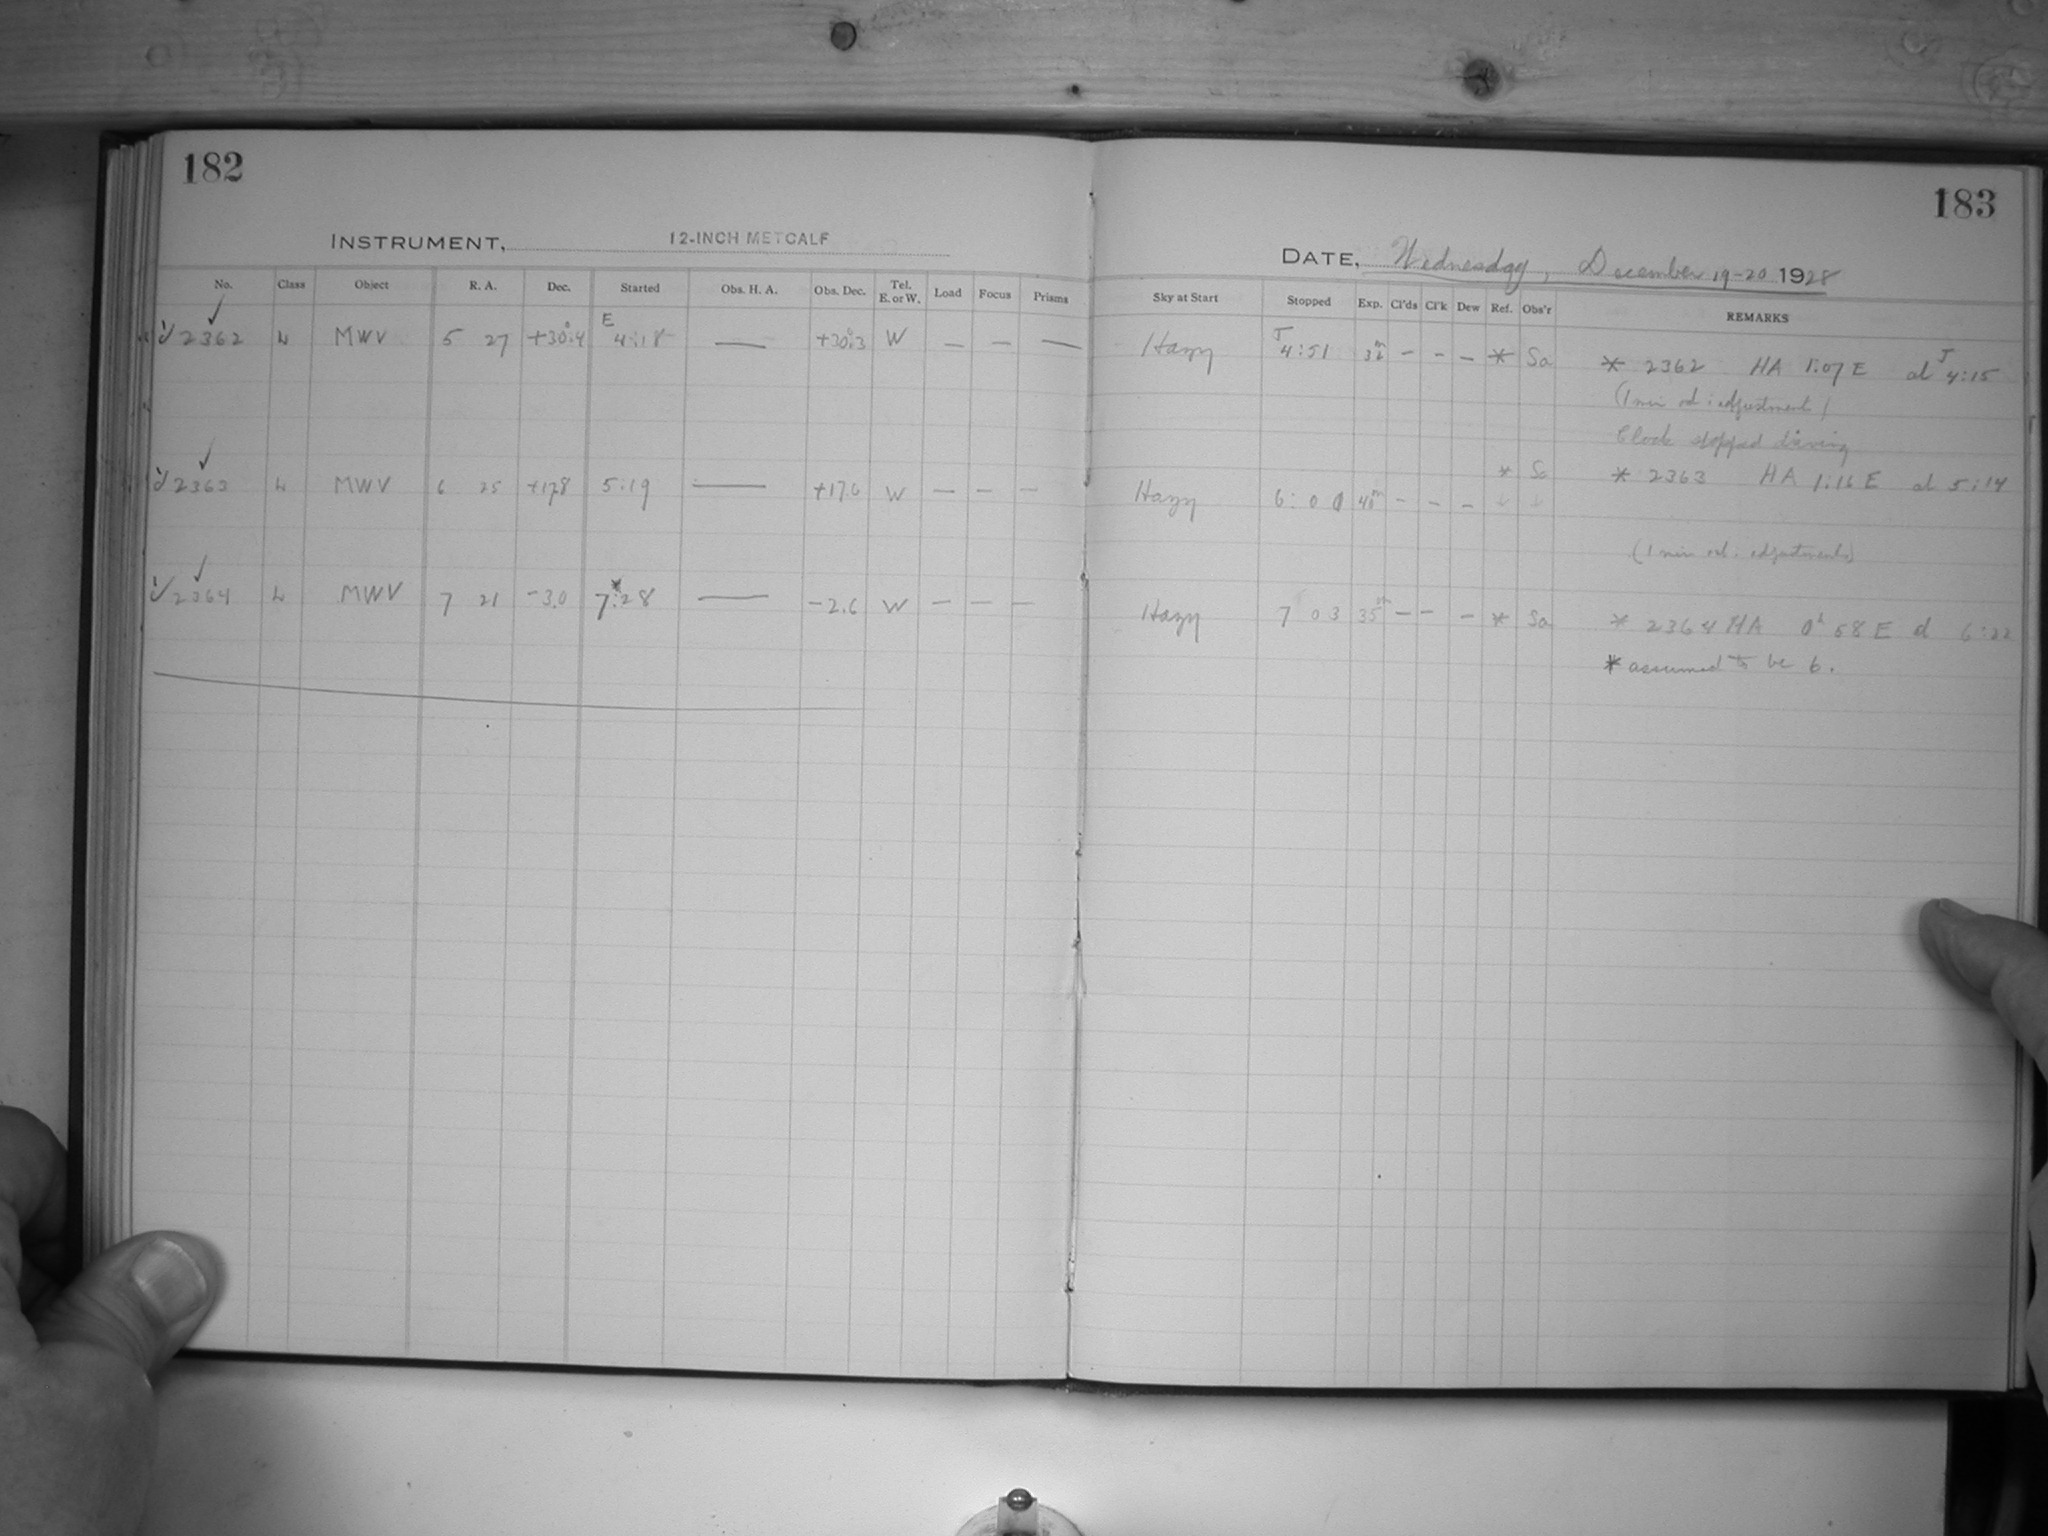 182
INSTRUMENT, 12-INCH METCALF
No. Class Object R. A. Dec. Started Obs. H. A. Obs. Dec. Tel. E. or W. Load Focus Prisms
2362 L MWV 5 27 +30.4 E 4:18 — +30.3 W — — —
2363 L MWV 6 25 +17.8 5:19 — +17.6 W — — —
2364 L MWV 7 21 -3.0 7*:28 — -2.6 W — — —
183
DATE, Wednesday, December 19-20 1928
Sky at Start Stopped Exp. Cl'ds Cl'k Dew Ref. Obs'r REMARKS
Hazy J 4:51 32m – – – * Sa * 2362 HA 1:07 E at J 4:15
(1 min adjustment)
Clock stopped driving
* 2363 HA 1:16 E at 5:14
Hazy 6:00 40m – – – * Sa
(1 min adjustments)
Hazy 7 03 35m – – – * Sa * 2364 HA 0h 58 E at 6:22
* assumed to be 6.